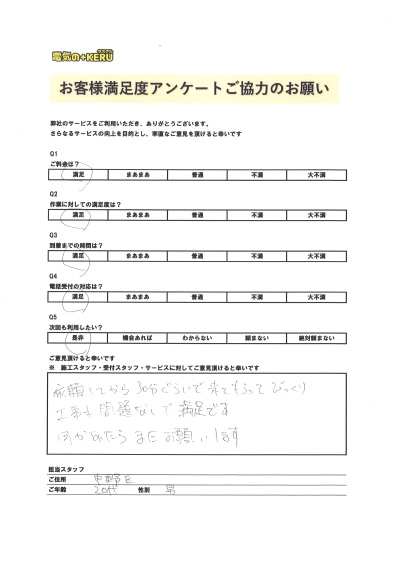 電気の+KERU
お客様満足度アンケートご協力のお願い
弊社のサービスをご利用いただき、ありがとうございます。
さらなるサービスの向上を目的とし、率直なご意見を頂けると幸いです
Q1
ご料金は?
満足 まあまあ 普通 不満 大不満
Q2
作業に対しての満足度は?
満足 まあまあ 普通 不満 大不満
Q3
到着までの時間は?
満足 まあまあ 普通 不満 大不満
Q4
電話受付の対応は?
満足 まあまあ 普通 不満 大不満
Q5
次回も利用したい?
是非 機会あれば わからない 頼まない 絶対頼まない
ご意見頂けると幸いです
※ 施工スタッフ・受付スタッフ・サービスに対してご意見頂けると幸いです
依頼してから30分ぐらいで来てもらってびっくり
工事も問題なしで満足です
何かあったらまたお願いします
担当スタッフ
ご住所 中野区
ご年齢 20代 性別 男